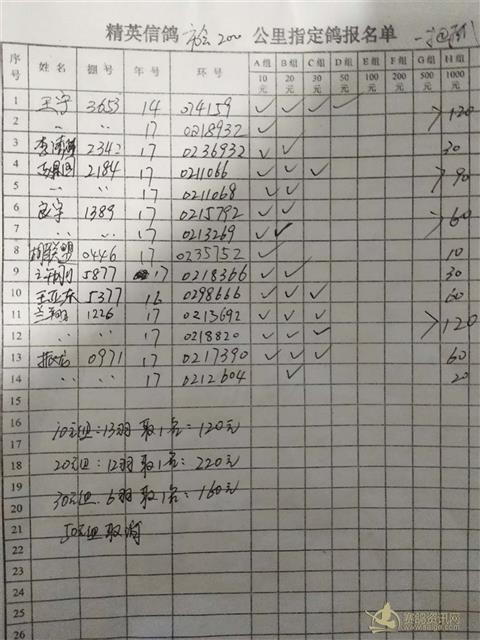 精英信鸽 市会 200 公里指定鸽报名单
序号 姓名 棚号 年号 环号 A组 10元 B组 20元 C组 30元 D组 50元 E组 100元 F组 200元 G组 500元 H组 1000元
1 王宇 3653 14 074159 ✓ ✓ ✓ ✓ >120
2 〃 〃 17 0218932 ✓
3 2342 17 0236932 ✓ ✓ 30
4 2184 17 0211066 ✓ ✓ ✓ >90
5 〃 〃 17 0211068 ✓ ✓
6 1389 17 0215792 ✓ ✓ >60
7 〃 〃 17 0213269 ✓ ✓
8 联盟 0446 17 0235752 ✓ 10
9 5877 17 0218366 ✓ ✓ 30
10 5377 16 0298666 ✓ ✓ ✓ 60
11 兰翔 1226 17 0213692 ✓ ✓ ✓ >120
12 〃 〃 17 0218820 ✓ ✓ ✓
13 0971 17 0217390 ✓ ✓ ✓ 60
14 〃 〃 17 0212604 ✓ 20
15
16 10元组:13羽取1名:120元
17
18 20元组:12羽取1名:220元
19
20 30元组:6羽取1名:160元
21 50元组取消
22
23
24
25
26
赛鸽资讯网
www.saige.com